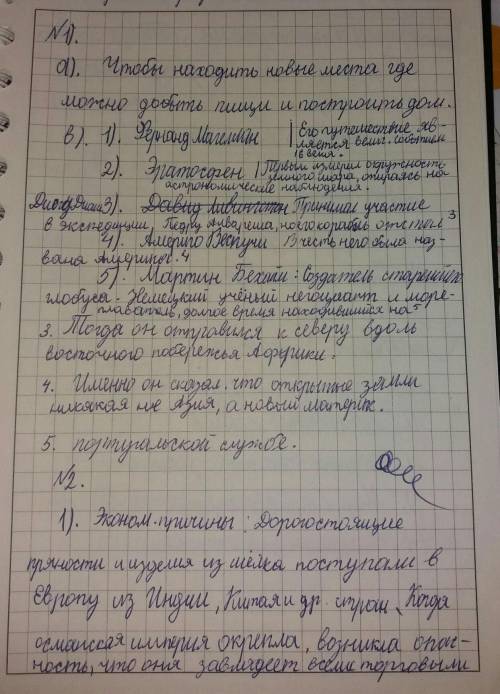 №1).
а). Чтобы находить новые места где
можно добыть пищи и построить дом.
в). 1). Фернанд Магеллан | Его путешествие яв-
ляется велич. событием
16 века.
2). Эратосфен | Первым измерил окружность
земного шара, опираясь на
астрономические наблюдения.
Диогу Диаш 3). Давид Ливингстон Принимал участие
в экспедиции, Педру Алвареша, но его корабль отстал 3
4). Америго Веспучи В честь него была наз-
вана Америкой. 4
5). Мартин Бехайм: Создатель старейшего
глобуса - Немецкий учёный негоциант и море-
плаватель, долгое время находившийся на 5
3. Тогда он отправился к северу вдоль
восточного побережья Африки.
4. Именно он сказал что открытые земли
никакая не Азия, а новый материк.
5. португальской службе.
№2.
1). Эконом. причины: Дорогостоящие
пряности и изделия из шёлка поступали в
Европу из Индии, Китая и др. стран. Когда
османская империя окрепла, возникла опас-
ность, что она завладеет всеми торговыми